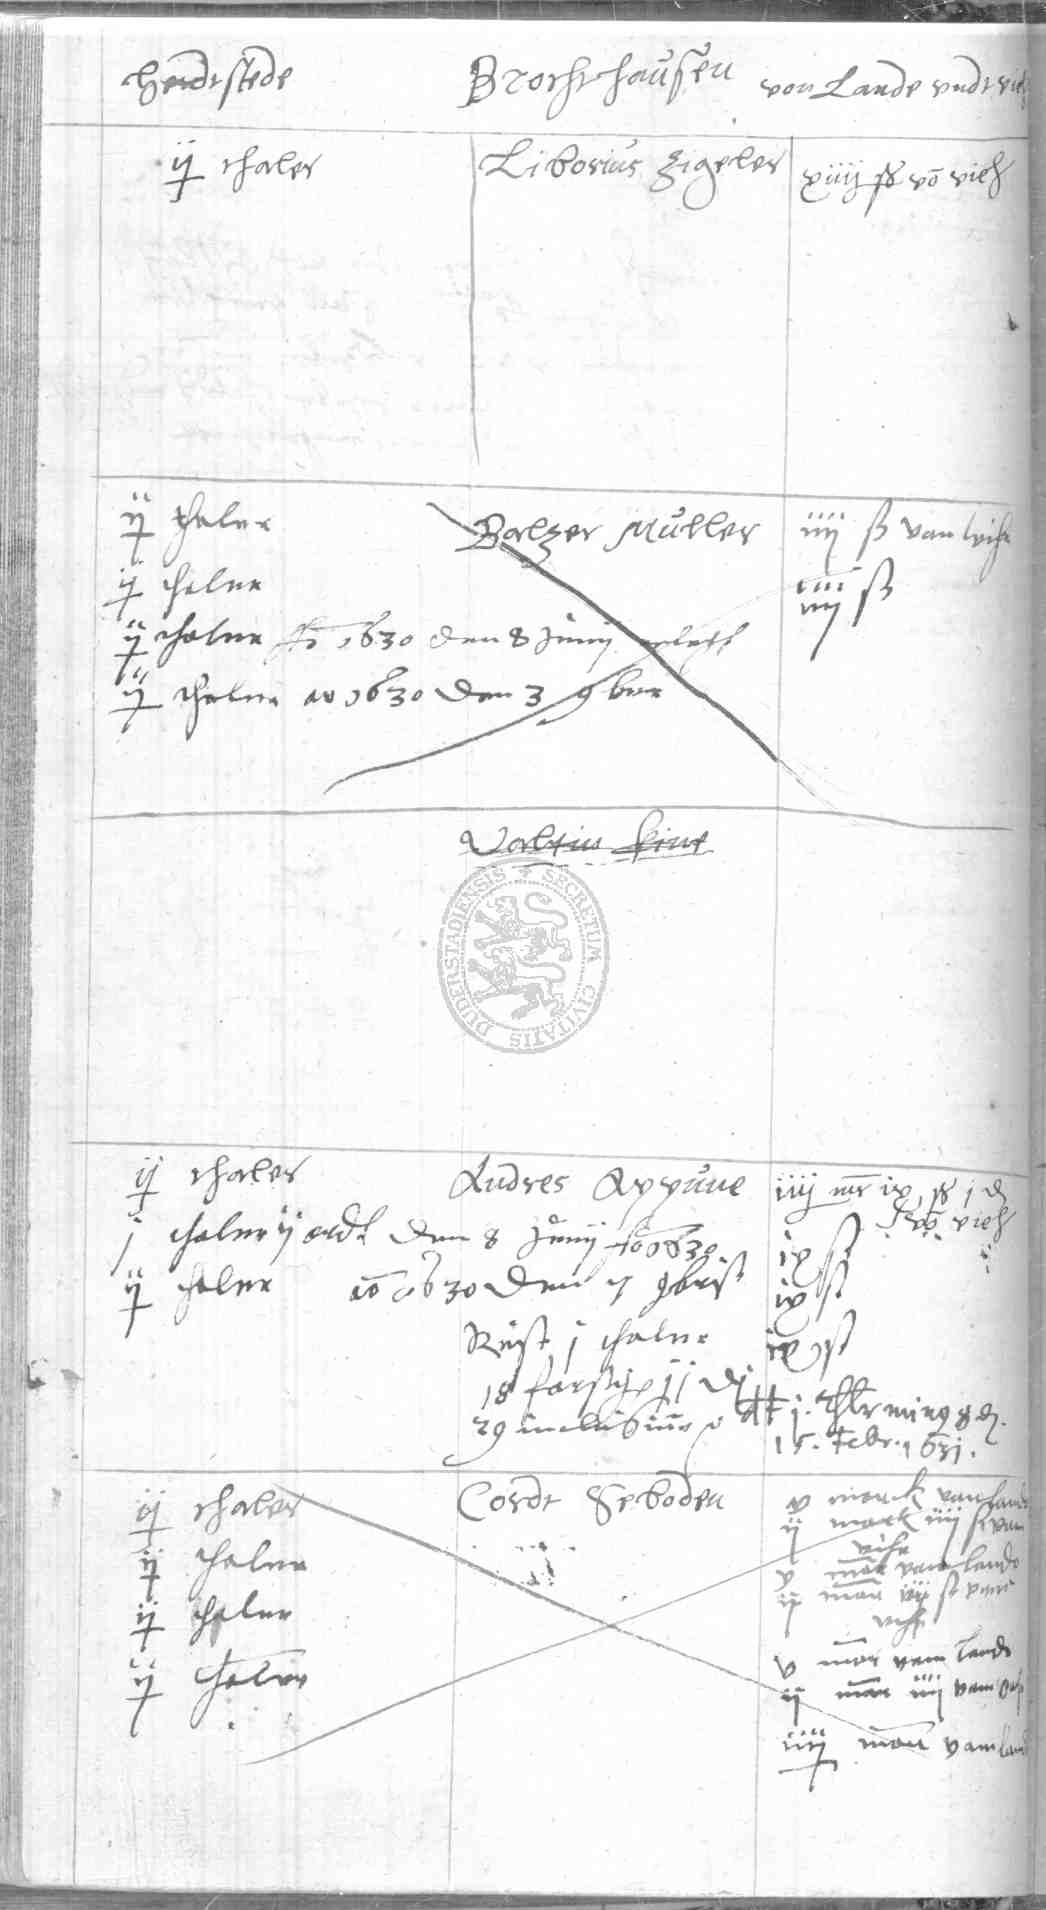 Herdtstede Brochthausen von Lande vndt vieh
ij thaler Liborius Zigeler xiiij ß vō vieh
ij thaler Baltzer Müller iiij ß van viehe
ij thaler iiij ß
ij thaler Ao 1630 den 8 Junij
ij thaler ao 1630 den 3 9ber
Valtin Kint
SECRETUM CIVITATIS DUDERSTADIENSIS
ij thaler Andres Appune iiij mr ix ß j d
vō vieh
j thaler ij ordt den 8 Junij Ao 1630 ix ß
ij thaler ao 1630 den 7 9bris ix ß
Rest j thaler ix ß
18
29 j. thlr min9 8 d.
15. Febr. 1631.
ij thaler Cordt Seboden v marck van lande
ij marck iiij ß vam
viehe
ij thaler v mar vam lande
ij mar iiij ß vam
viehe
ij thaler
ij thaler v mar vam lande
ij mar iiij vam vehe
iiij mar vam land